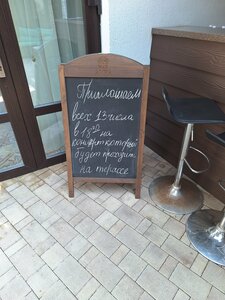 Приглашаем
всех 1 числа
в 18:30 на
концерт который
будет проходить
на террасе